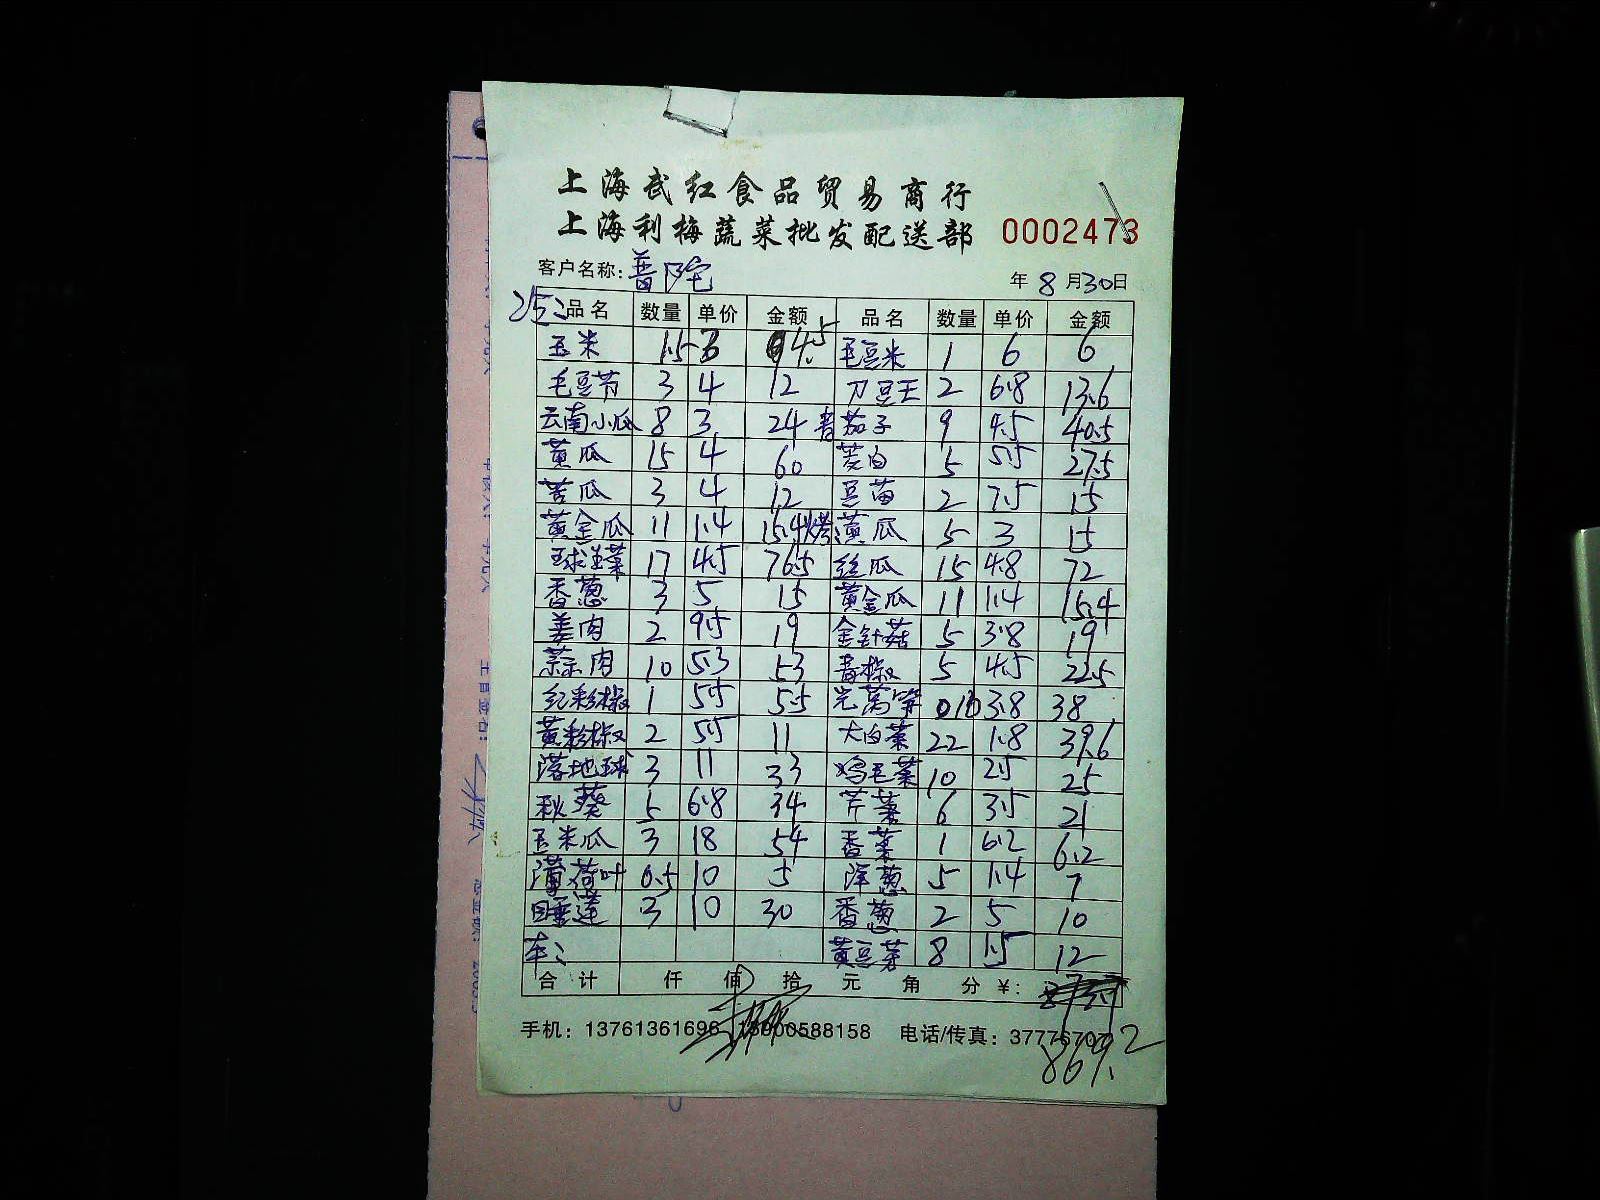 上海武红食品贸易商行
上海利梅蔬菜批发配送部 0002473
客户名称: 普陀 年 8 月 30 日
品名 数量 单价 金额 品名 数量 单价 金额
玉米 1.5 3 4.5 毛豆米 1 6 6
毛豆节 3 4 12 刀豆王 2 6.8 13.6
云南小瓜 8 3 24 青茄子 9 4.5 40.5
黄瓜 15 4 60 茭白 5 5.5 27.5
苦瓜 3 4 12 豆苗 2 7.5 15
黄金瓜 11 1.4 15.4 黄瓜 5 3 15
球生菜 17 4.5 76.5 丝瓜 15 4.8 72
香葱 3 5 15 黄金瓜 11 1.4 15.4
姜肉 2 9.5 19 金针菇 5 3.8 19
蒜肉 10 5.3 53 青椒 5 4.5 22.5
红彩椒 1 5.5 5.5 光莴笋 10 3.8 38
黄彩椒 2 5.5 11 大白菜 22 1.8 39.6
落地球 3 11 33 鸡毛菜 10 2.5 25
秋葵 5 6.8 34 芹菜 6 3.5 21
玉米瓜 3 18 54 香菜 1 6.2 6.2
薄荷叶 0.5 10 5 洋葱 5 1.4 7
睡莲 3 10 30 香葱 2 5 10
黄豆芽 8 1.5 12
合计 仟 佰 拾 元 角 分 ¥:
手机: 13761361696 13900588158 电话/传真: 37776707
869.2